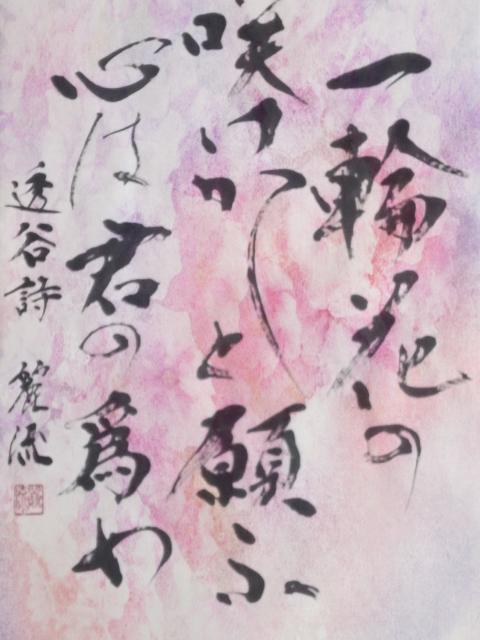 一輪花の
咲けかしと願ふ
心は君の爲め
透谷詩